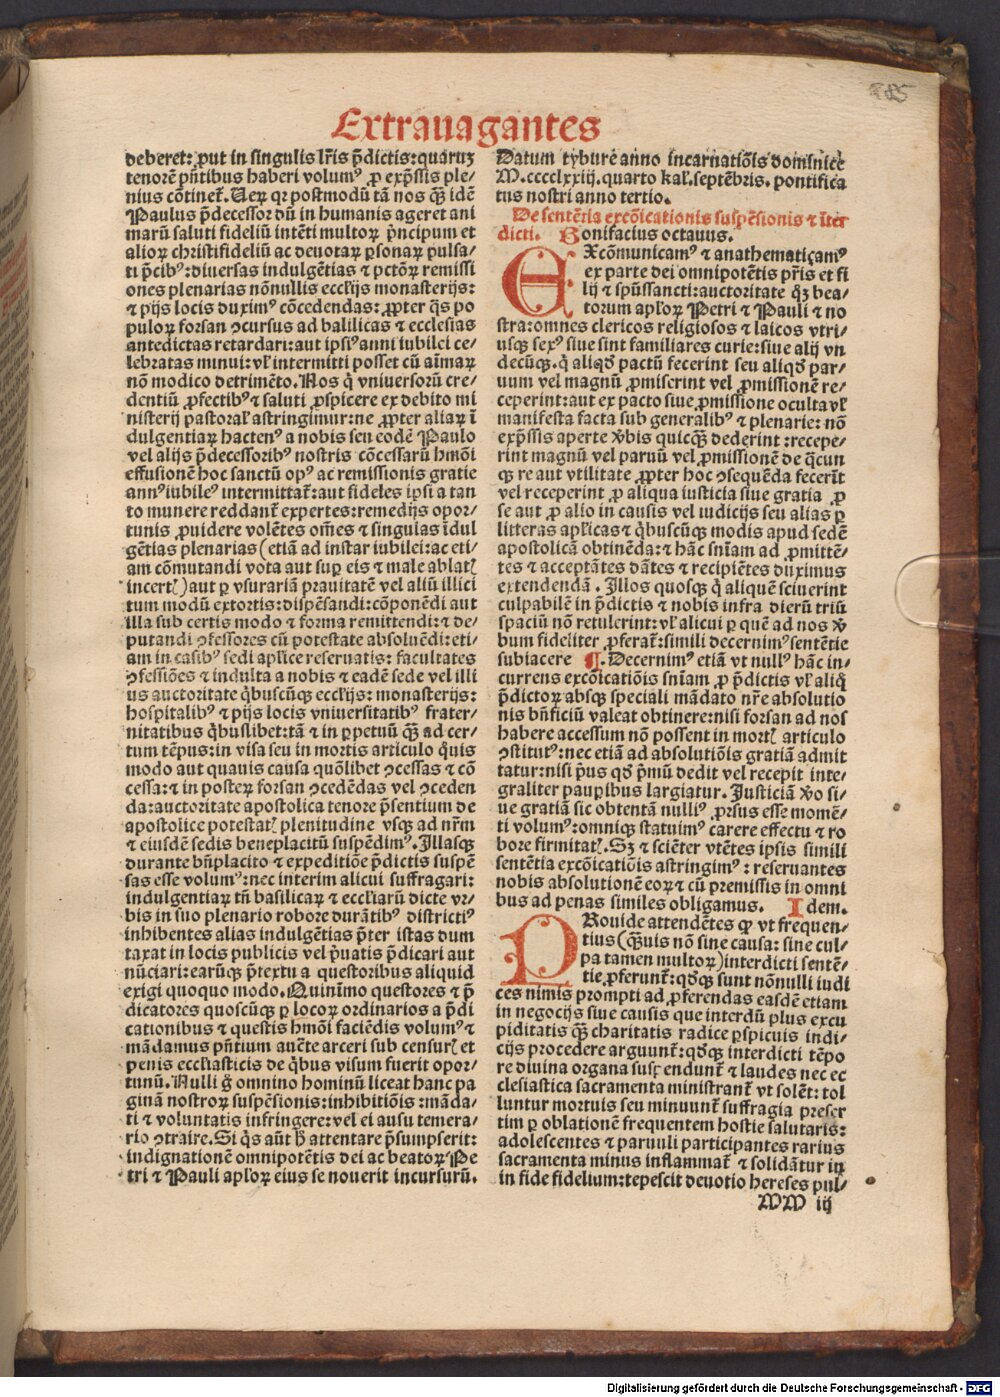 285
Extrauagantes
deberet: ꝓut in singulis lr̄is p̄dictis: quaruꝫ
tenorē pn̄tibus haberi volumꝰ ꝓ exp̄ssis ple⸗
nius cōtinet᷑. Ueꝝ qꝛ postmodū tā nos qꝫ̄ idē
Paulus p̄decessor dū in humanis ageret ani
marū saluti fideliū intēti multoꝝ p̄ncipum et
alioꝝ christifideliū ac deuotaꝝ ꝑsonaꝝ pulsa⸗
ti p̄cibꝰ: diuersas indulgētias ⁊ pctōꝝ remissi
ones plenarias nōnullis eccłijs monasterijs:
⁊ pijs locis duximꝰ cōcedendas: ꝓpter q̄s po
puloꝝ forsan ꝯcursus ad basilicas ⁊ ecclesias
antedictas retardari: aut ipsiꝰ anni iubilei ce⸗
lebratas minui: vł intermitti posset cū aīmaꝝ
nō modico detrimēto. Nos q̇ vniuersorū cre⸗
dentiū ꝓfectibꝰ ⁊ saluti ꝓspicere ex debito mi
nisterij pastoral᷑ astringimur: ne ꝓpter aliaꝝ ī
dulgentiaꝝ hactenꝰ a nobis seu eodē Paulo
vel alijs p̄decessoribꝰ nostris cōcessarū hmōi
effusionē hoc sanctū opꝰ ac remissionis gratie
annꝰ iubileꝰ intermittat᷑: aut fideles ipsi a tan
to munere reddant᷑ expertes: remedijs opor⸗
tunis ꝓuidere volētes om̄es ⁊ singulas īdul
gētias plenarias (etiā ad instar iubilei: ac eti⸗
am cōmutandi vota aut suꝑ eis ⁊ male ablatꝭ
incertꝭ) aut ꝑ vsurariā prauitatē vel aliū illici
tum modū extortis: dispēsandi: cōponēdi aut
illa sub certis modo ⁊ forma remittendi: ⁊ de⸗
putandi ꝯfessores cū potestate absoluēdi: eti⸗
am in casibꝰ sedi apłice reseruatis: facultates
ꝯfessiōes ⁊ indulta a nobis ⁊ eadē sede vel illi
us auctoritate q̇buscūqꝫ eccłijs: monasterijs:
hospitalibꝰ ⁊ pijs locis vniuersitatibꝰ frater⸗
nitatibus q̇buslibet: tā ⁊ in ꝑpetuū qꝫ̄ ad cer⸗
tum tēpus: in visa seu in mortis articulo q̇uis
modo aut quauis causa quōlibet ꝯcessas ⁊ cō
cessa: ⁊ in posteꝝ forsan ꝯcedēdas vel ꝯceden
da: auctoritate apostolica tenore p̄sentium de
apostolice potestatꝭ plenitudine vsqꝫ ad nr̄m
⁊ eiusdē sedis beneplacitū suspēdimꝰ. Illasqꝫ
durante bn̄placito ⁊ expeditiōe p̄dictis suspē
sas esse volumꝰ: nec interim alicui suffragari:
indulgentiaꝝ tn̄ basilicaꝝ ⁊ eccłiarū dicte vr⸗
bis in suo plenario robore durātibꝰ districtiꝰ
inhibentes alias indulgētias p̄ter istas dum
taxat in locis publicis vel p̄uatis p̄dicari aut
nūciari: earūqꝫ p̄textu a questoribus aliquid
exigi quoquo modo. Quinīmo questores ⁊ p̄
dicatores quoscūqꝫ ꝑ locoꝝ ordinarios a p̄di
cationibus ⁊ questis hmōi faciēdis volumꝰ ⁊
mādamus pn̄tium auc̄te arceri sub censurꝭ et
penis eccłiasticis de q̇bus visum fuerit opor⸗
tunū. Nulli g̊ omnino hominū liceat hanc pa
ginā nostroꝝ suspēsionis: inhibitiōis: māda⸗
ti ⁊ voluntatis infringere: vel ei ausu temera⸗
rio ꝯtraire. Si q̄s aūt h̄ attentare p̄sumpserit:
indignationē omnipotētis dei ac beatoꝝ Pe
tri ⁊ Pauli apłoꝝ eius se nouerit incursurū.
Datum tybure anno incarnatiōis dominice
M.cccclxxiij. quarto kal᷑. septēbris. pontifica
tus nostri anno tertio.
De sentētia excōicationis suspēsionis ⁊ īter
dicti. Bonifacius octauus.
EXcōmunicamꝰ ⁊ anathematiçamꝰ
ex parte dei omnipotētis pr̄is et fi
lij ⁊ spūssancti: auctoritate q̊ꝫ bea⸗
torum apłoꝝ Petri ⁊ Pauli ⁊ no
stra: omnes clericos religiosos ⁊ laicos vtri⸗
usqꝫ sexꝰ siue sint familiares curie: siue alij vn
decūqꝫ. q̇ aliqd̓ pactū fecerint seu aliqd̓ par⸗
uum vel magnū ꝓmiserint vel ꝓmissionē re⸗
ceperint: aut ex pacto siue ꝓmissione oculta vł
manifesta facta sub generalibꝰ ⁊ plenarie: nō
exp̄ssis aperte v̓bis quicqꝫ̄ dederint: recepe⸗
rint magnū vel paruū vel ꝓmissionē de q̇cun
qꝫ re aut vtilitate ꝓpter hoc ꝯsequēda fecerīt
vel receperint ꝓ aliqua iusticia siue gratia ꝓ
se aut ꝓ alio in causis vel iudicijs seu alias ꝑ
litteras apłicas ⁊ q̇buscūqꝫ modis apud sedē
apostolicā obtinēda: ⁊ hāc sn̄iam ad ꝓmittē⸗
tes ⁊ acceptātes dātes ⁊ recipiētes duximus
extendendā. Illos quosqꝫ q̇ aliquē sciuerint
culpabilē in p̄dictis ⁊ nobis infra dierū triū
spaciū nō retulerint: vł alicui ꝑ quē ad nos v̓
bum fideliter ꝓferat᷑: simili decernimꝰ sentētie
subiacere ¶. Decernimꝰ etiā vt nullꝰ hāc in⸗
currens excōicatiōis sn̄iam ꝓ p̄dictis vł aliq̇
p̄dictoꝝ absqꝫ speciali mādato nr̄e absolutio
nis bn̄ficiū valeat obtinere: nisi forsan ad nos
habere accessum nō possent in mortꝭ articulo
ꝯstitutꝰ: nec etiā ad absolutiōis gratiā admit
tatur: nisi p̄us qd̓ p̄mū dedit vel recepit inte⸗
graliter pauꝑibus largiatur. Justiciā v̓o si⸗
ue gratiā sic obtentā nulliꝰ ꝓrsus esse momē⸗
ti volumꝰ: omniqꝫ statuimꝰ carere effectu ⁊ ro
bore firmitatꝭ. Sꝫ ⁊ sciēter vtētes ipsis simili
sentētia excōicatiōis astringimꝰ: reseruantes
nobis absolutionē eoꝝ ⁊ cū premissis in omni
bus ad penas similes obligamus. Idem.
PRouide attendētes ꝙ vt frequen⸗
tius (qꝫ̄uis nō sine causa: sine cul⸗
pa tamen multoꝝ) interdicti sentē⸗
tie ꝓferunt᷑: qd̓qꝫ sunt nōnulli iudi
ces nimis prompti ad ꝓferendas easdē etiam
in negocijs siue causis que interdū plus excu
piditatis qꝫ̄ charitatis radice ꝑspicuis indi⸗
cijs procedere arguunt᷑: qd̓qꝫ interdicti tēpo
re diuina organa suspendunt᷑ ⁊ laudes nec ec
clesiastica sacramenta ministrant᷑ vt solēt: tol
luntur mortuis seu minuunt᷑ suffragia preser
tim ꝑ oblationē frequentem hostie salutaris:
adolescentes ⁊ paruuli participantes rarius
sacramenta minus inflammat᷑ ⁊ solidātur in
in fide fidelium: tepescit deuotio hereses pul⸗
MM iij
Digitalisierung gefördert durch die Deutsche Forschungsgemeinschaft - DFG